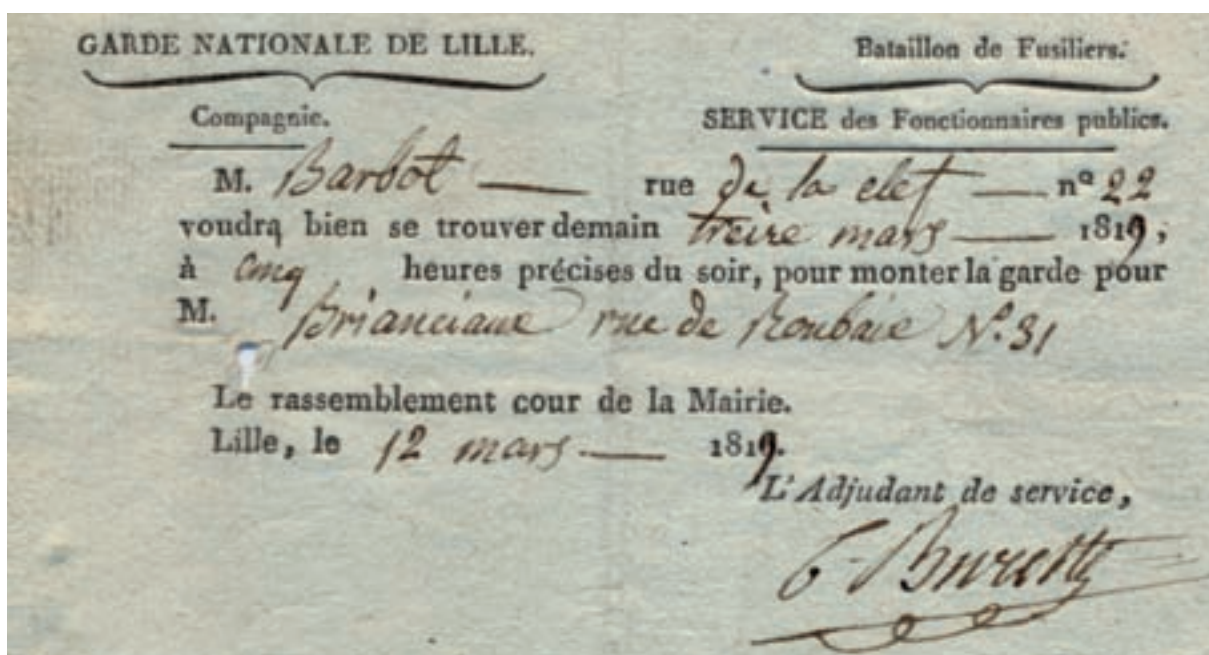 GARDE NATIONALE DE LILLE.
Bataillon de Fusiliers.
Compagnie.
SERVICE des Fonctionnaires publics.
M. Barbot — rue de la clef — nº 22
voudra bien se trouver demain treize mars — 1819,
à cinq heures précises du soir, pour monter la garde pour
M. Brianciaux rue de Roubaix Nº. 31
Le rassemblement cour de la Mairie.
Lille, le 12 mars — 1819.
L'Adjudant de service,